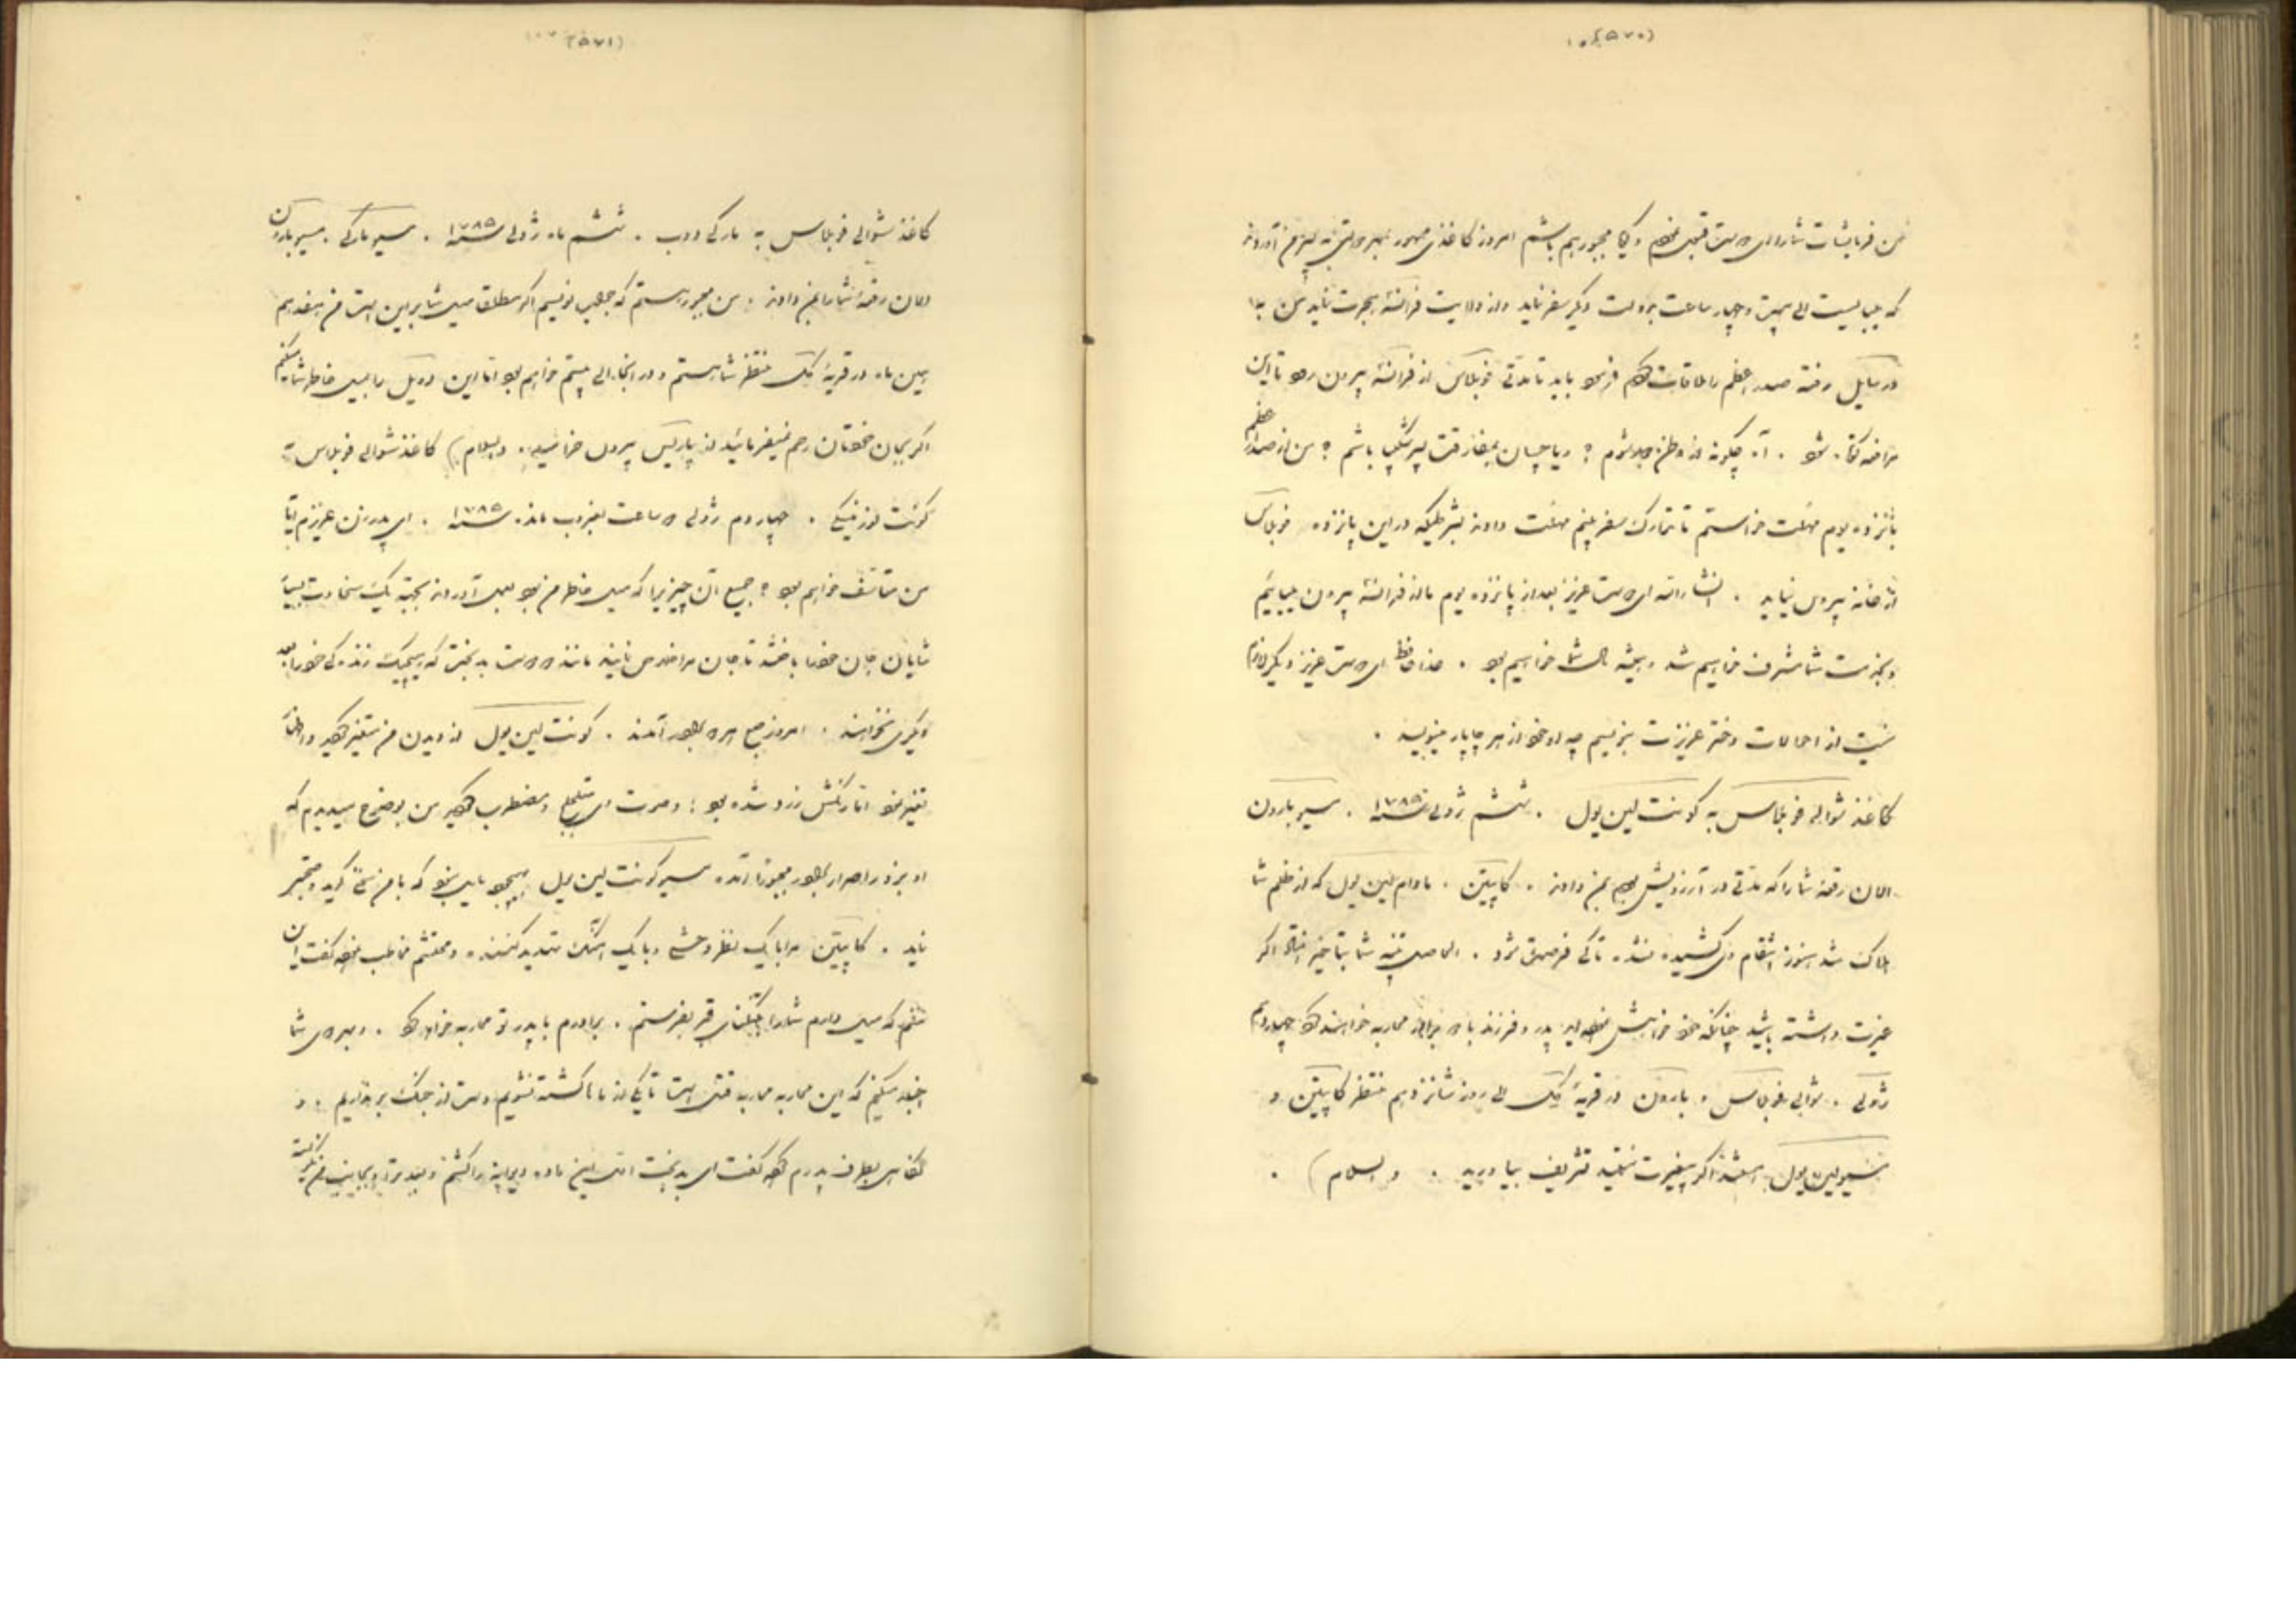 (۵۷۰)
من فرمایشات شما را ای دوست قبول نمودم و گویا مجبور هم باشم امروز کاغذی ممهور بمهر دولتی به من آوردند
که می‌بایست الی بیست و چهار ساعت بدولت دیگر سفر نماید و از ولایت فرانسه هجرت نماید من به
ورسایل رفته صدر اعظم را ملاقات کردم فرمود باید تا مدتی فوبلاس از فرانسه بیرون رود تا این
مرافعه کوتاه شود . آه چگونه از وطن جدا شوم ؟ و یا چسان بمفارقت پسر شکیبا باشم ؟ من از صدر اعظم
پانزده یوم مهلت خواستم تا تدارک سفر بینم مهلت دادند بشرطیکه در این پانزده فوبلاس
از خانه بیرون نیاید . انشاءالله ای دوست عزیز بعد از پانزده یوم ما از فرانسه بیرون میائیم
و بخدمت شما مشرف خواهیم شد و همیشه با شما خواهیم بود . خداحافظ ای دوست عزیز دیگر لازم
نیست از احوالات دختر عزیزت بنویسم چه او خود از هر چاپار مینویسد .
کاغذ شوالیه فوبلاس به کونت لین یول . ششم ژولی سنه ۱۷۸۵ . مسیو بارون
الان رقعه شما را که مدتی در آرزویش بودم بمن دادند . کاپیتن . مادام لین یول که از ظلم شما
هلاک شد هنوز انتقام وی کشیده نشده تا کی فرصت شود . الحاصل تنبیه شما بتاخیر افتاد اگر
غیرت داشته باشید چنانکه خود خواهش نموده‌اید پدر و فرزند با دو برادر محاربه خواهند کرد چهاردهم
ژولی . شوالیه فوبلاس و بارون در قریه یک الی روز شانزدهم منتظر کاپیتن و
مسیو لین یول هستند اگر بیغیرت نیستید تشریف بیاورید . والسلام ) .
(۵۷۱)
کاغذ شوالیه فوبلاس به مارکی دوب . ششم ماه ژولی سنه ۱۷۸۵ . مسیو مارکی . مسیو بارون
الان رقعه شما را بمن دادند . من مجبور هستم که جواب نویسم اگر مطلقا میل شما بر این است من هفدهم
همین ماه در قریه یک منتظر شما هستم و در آنجا الی بیستم خواهم بود اما این دویل را بمیل خاطر شما میکنم
اگر بجان خودتان رحم نمیفرمائید از پاریس بیرون خرامید . والسلام ) کاغذ شوالیه فوبلاس به
کونت لوزنیسکی . چهاردم ژولی ۵ ساعت بغروب مانده سنه ۱۷۸۵ . ای پدر زن عزیزم آیا
من متاسف خواهم بود ؟ جمیع آن چیزیرا که میل خاطر من بود بعمل آوردند بجهة یک سخاوت بسیار
شایان جان خود را باختند تا جان مرا خلاص نمایند مانند دو دوست بدبخت که هیچیک زندگی خود را بعد
دیگری نخواهند . امروز صبح هر دو بظهور آمدند . کونت لین یول از دیدن من متغیر گردید و اظهار
تغیر نمود اما رنگش زرد شده بود ؛ و صورت وی متلجلج و مضطرب گردید من بوضوح میدیدم که
او بزور و اصرار بظهور مجبورا آمده مسیو کونت لین یول هیچوجه مایل نبود که با من سخن گوید و تحقیر
نماید . کاپیتن مرا با یک نظر وحشی و با یک آهنگ تهدید کننده و محتشم مخاطب نموده گفت این
منم که میل دارم شما را بتنگنای قبر بفرستم . برادرم با پدر تو محاربه خواهد کرد . و بهر دوی شما
اخبار میکنم که این محاربه محاربه قتل است تا یکی از ما کشته نشویم دست از جنگ برنداریم . و
نگاهی بطرف پدرم کرده گفت ای بدبخت